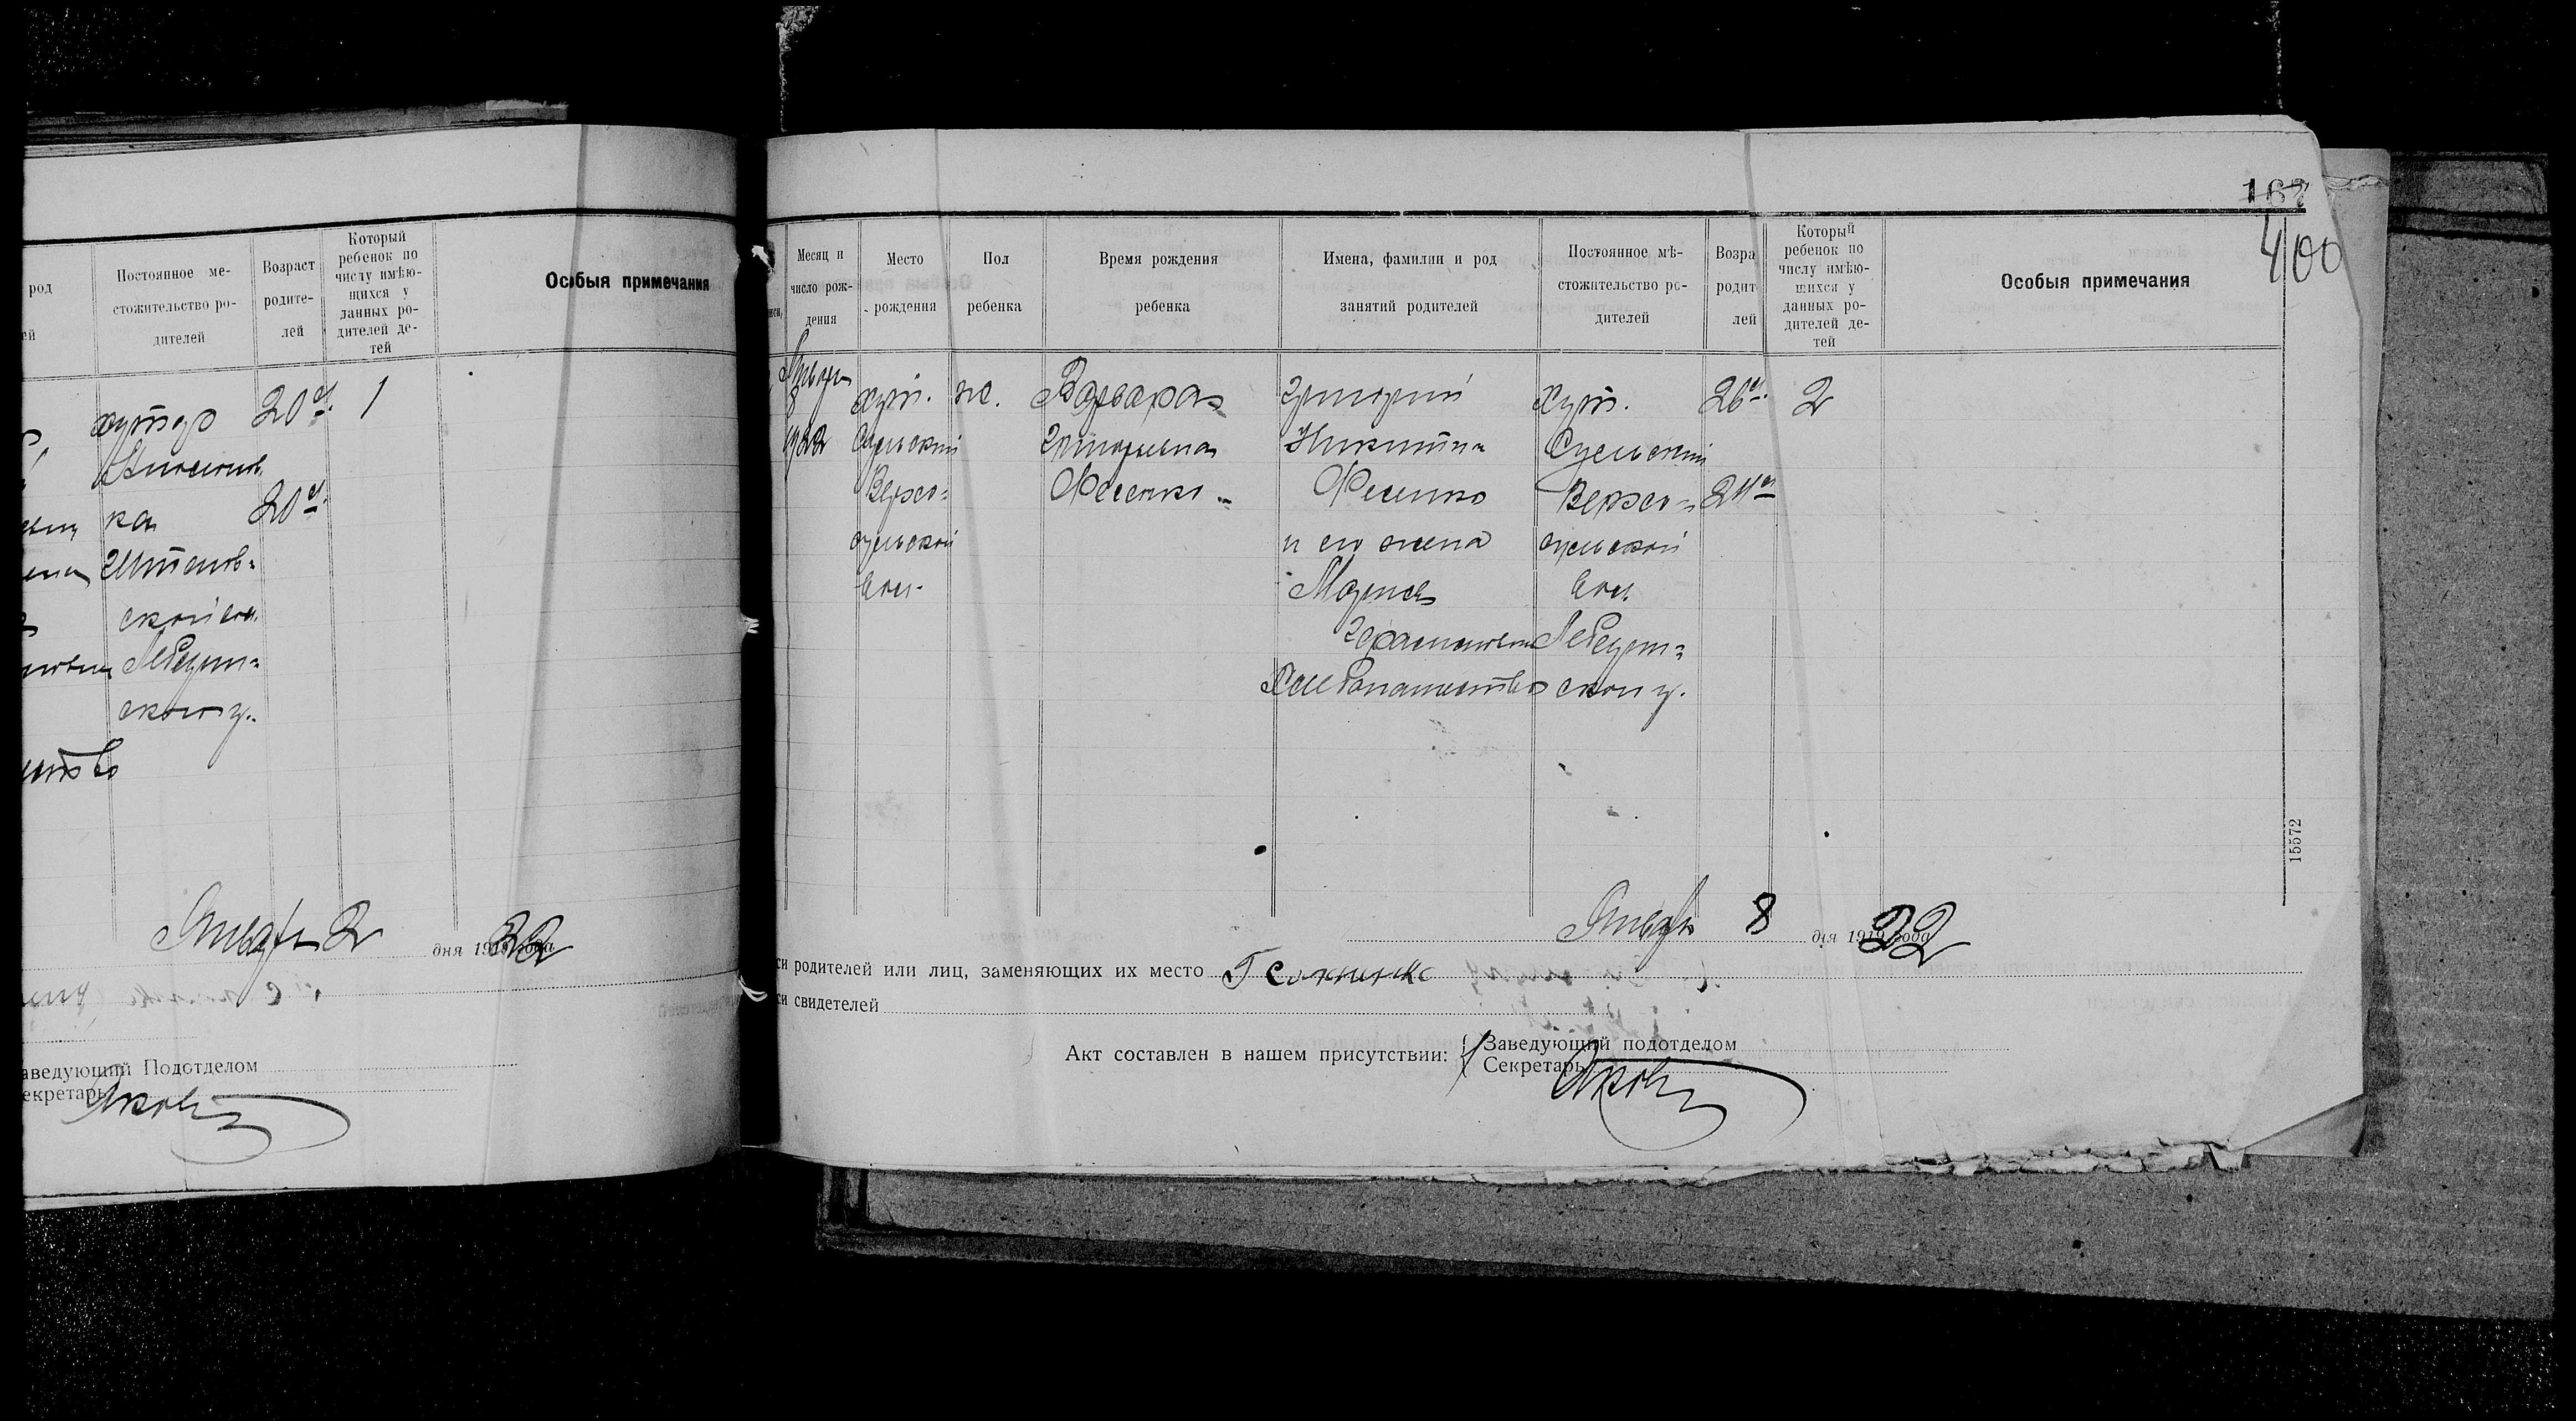 род
ей
Постоянное ме-
стожительство ро-
дителей
Возраст
родите-
лей
Который
ребенок по
числу имѣю-
щихся у
данных ро-
дителей де-
тей
Особыя примечания
хутор
ка
ской вол.
Лебедин-
ской у.
20 л.
20 л.
1
Январь 2 дня 1919 года 22
аведующий Подотделом
екретарь
167
400
Месяц и
число рож-
дения
Место
рождения
Пол
ребенка
Время рождения
ребенка
Имена, фамилии и род
занятий родителей
Постоянное мѣ-
стожительство ро-
дителей
Возра
родит
лей
Который
ребенок по
числу имѣю-
щихся у
данных ро-
дителей де-
тей
Особыя примечания
Январь
8
1922
хут.
Сульский
Верхо-
сульской
вол.
ж.
Варвара
Григорьевна
Фесенко
Григорий
Никитич
Фесенко
и его жена
Мария
Герасимовна
Хлебопашество
хут.
Сульский
Верхо-
сульской
вол.
Лебедин-
ской у.
26 л.
24 л.
2
15572
Январь 8 дня 1919 года 22
си родителей или лиц, заменяющих их место
си свидетелей
Акт составлен в нашем присутствии:
Заведующий подотделом
Секретарь